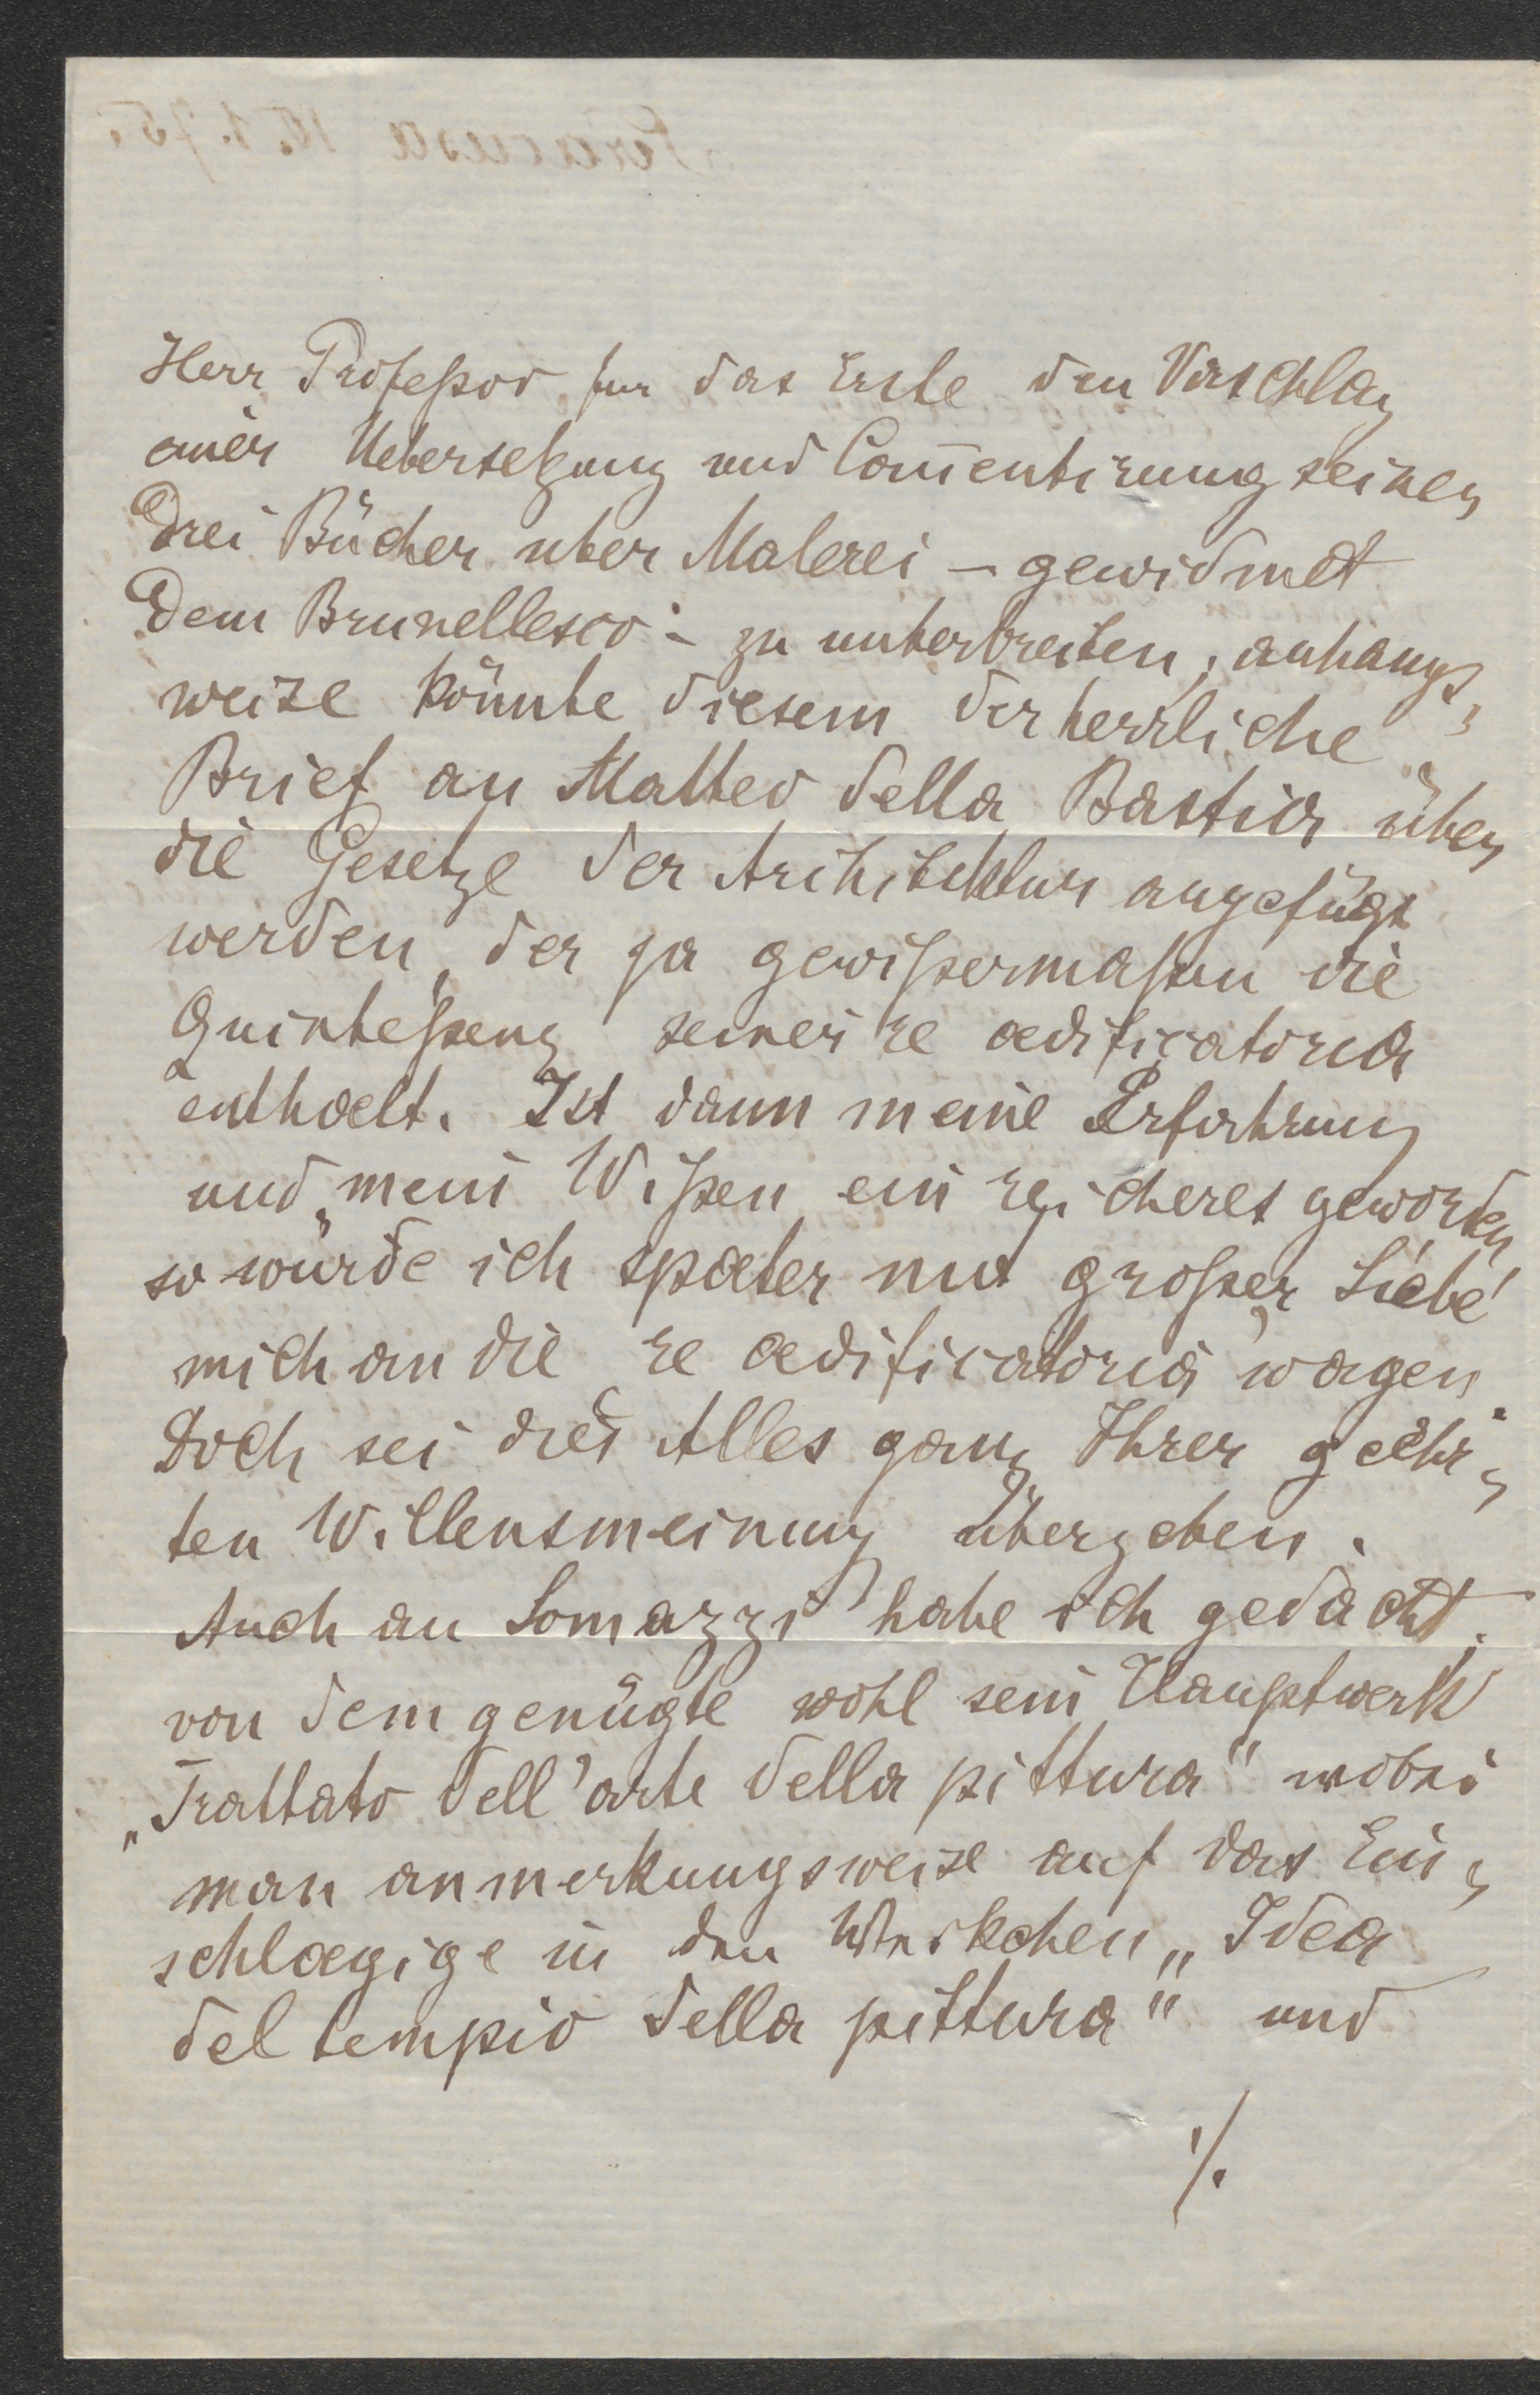 Herr Profeßor fur das Erste den Vorschlag
einer Uebersetzung und Com̄entirung seiner
Drei Bücher uber Malerei – gewidmet
Dem Brunellesco – zu unterbreiten; anhangs-
weise könnte diesem der herrliche
Brief an Matteo della Bastia über
die Gesetze der Architektur angefügt
werden, der ja gewißermaßen die
Quinteßenz seiner re aedificatoria
enthaelt. Ist dann meine Erfahrung
und mein Wißen ein reicheres geworden
so würde ich spaeter mit großer Liebe
mich an die re aedificatoria wagen.
Doch sei dies Alles ganz Ihrer geehr-
ten Willensmeinung übergeben.
Auch an Lomazzi habe ich gedacht.
von dem genügte wohl sein Hauptwerk
„Trattato dell'arte della pittura“ wobei
man anmerkungsweise auf das Ein-
schlaegige in den Werkchen „Idea
del tempio della pittura“ und
./.